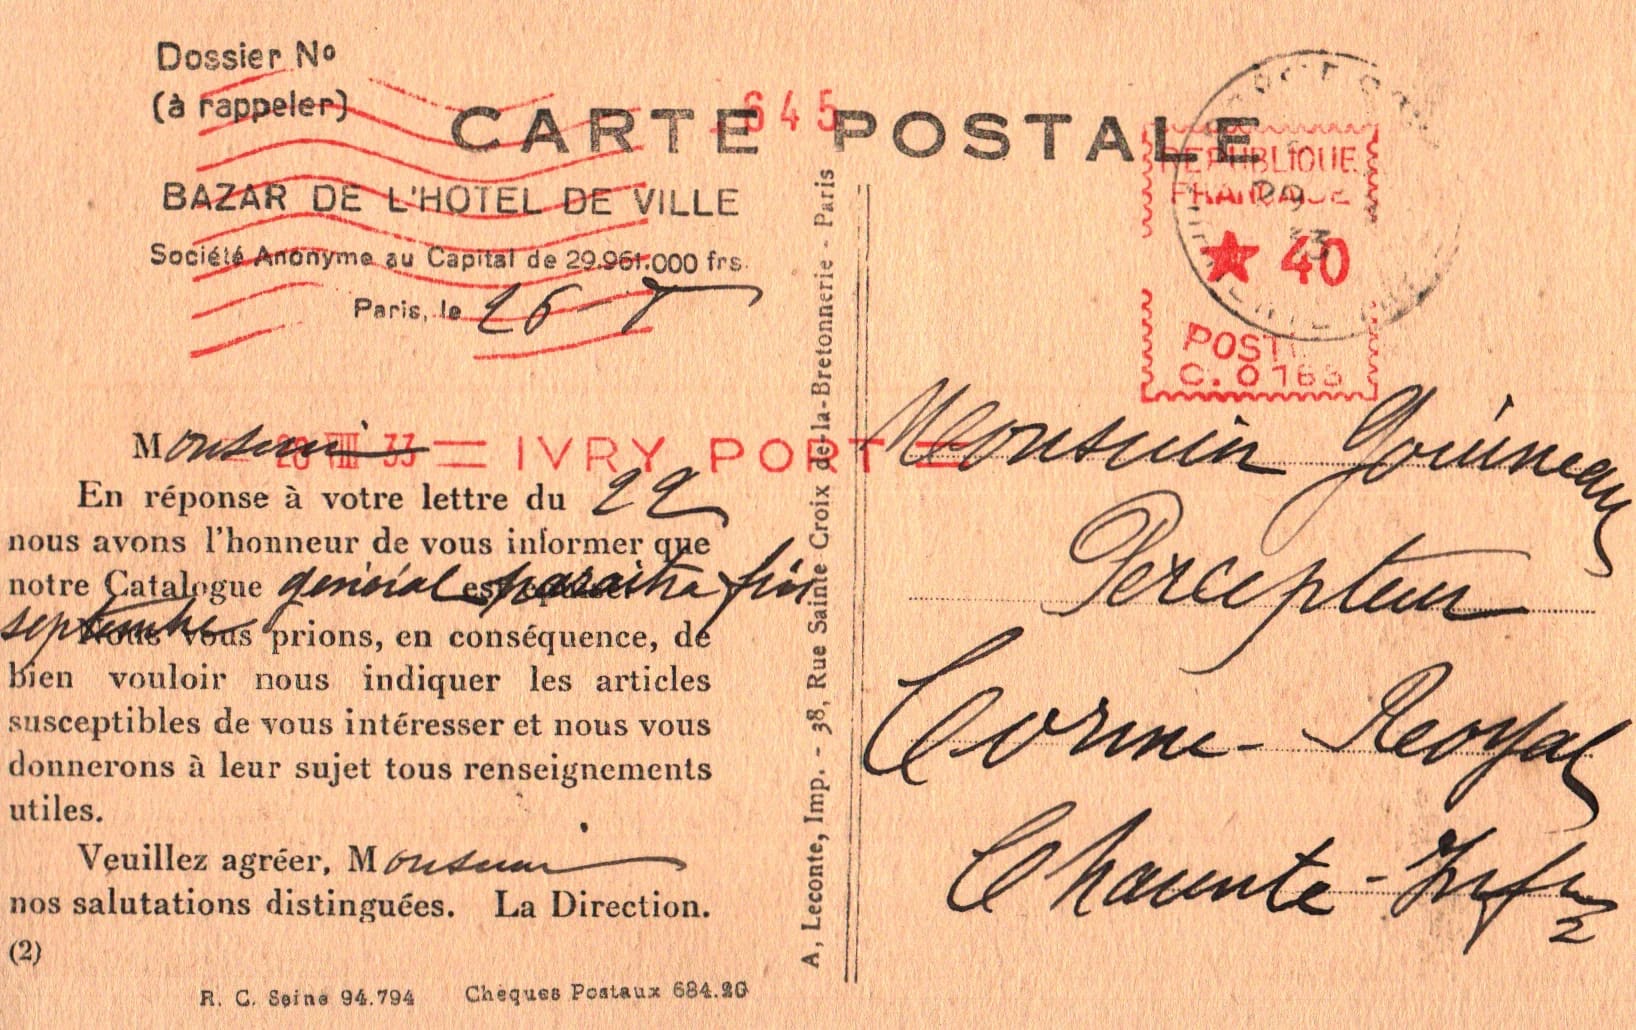 Dossier Nº
(à rappeler)
645
CARTE POSTALE
BAZAR DE L'HOTEL DE VILLE
Société Anonyme au Capital de 29.961.000 frs.
Paris, le 26-8
REPUBLIQUE
FRANÇAISE
★ 40
POSTES
C. 0163
29
33
28 VIII 33 = IVRY PORT =
Monsieur
En réponse à votre lettre du 22
nous avons l'honneur de vous informer que
notre Catalogue général paraitra fin
septembre
Nous vous prions, en conséquence, de
bien vouloir nous indiquer les articles
susceptibles de vous intéresser et nous vous
donnerons à leur sujet tous renseignements
utiles.
Veuillez agréer, Monsieur
nos salutations distinguées. La Direction.
(2)
R. C. Seine 94.794 Chèques Postaux 684.20
A, Leconte, Imp. - 38, Rue Sainte Croix de-la-Bretonnerie - Paris
Monsieur Gouineau
Percepteur
Corme-Royal
Charente-Infre